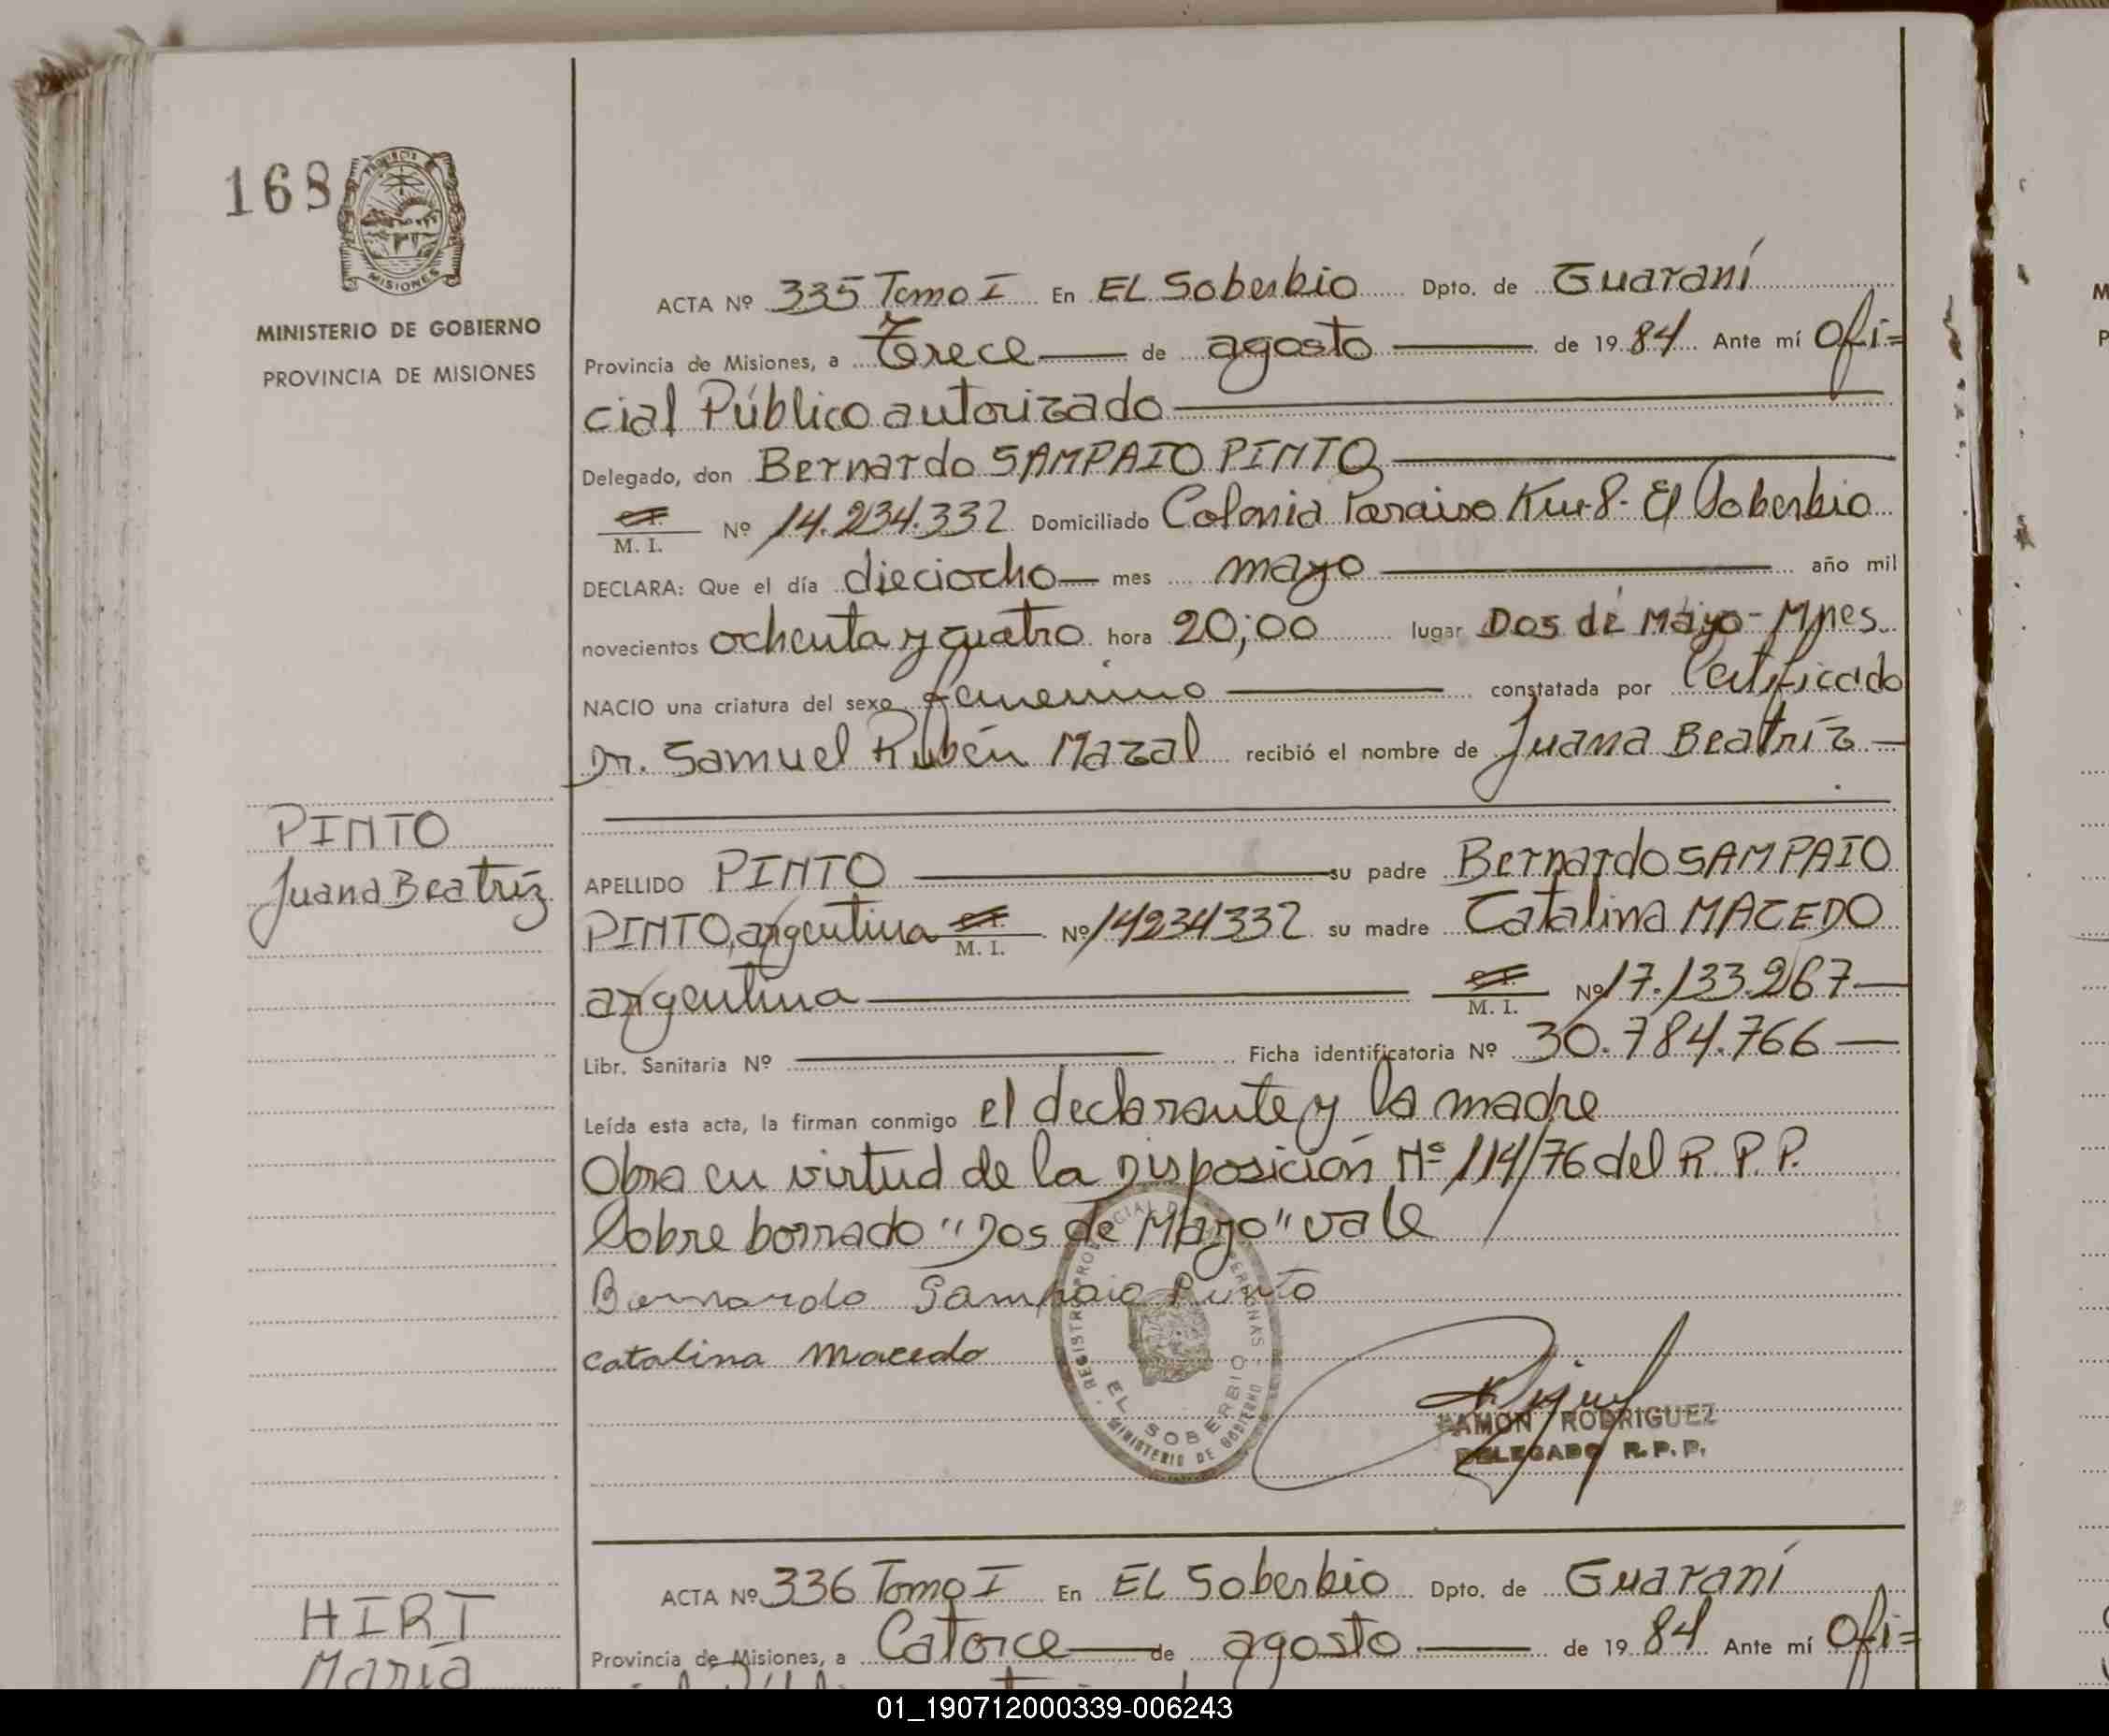 168
PROVINCIA
MISIONES
MINISTERIO DE GOBIERNO
PROVINCIA DE MISIONES
ACTA Nº 335 Tomo I En EL Soberbio Dpto. de Guaraní
Provincia de Misiones, a Trece de agosto de 1984 Ante mí Ofi=
cial Público autorizado
Delegado, don Bernardo SAMPAIO PINTO
M. I. Nº 14.234.332 Domiciliado Colonia Paraiso Km 8. El Soberbio
DECLARA: Que el día dieciocho mes mayo año mil
novecientos ochenta y cuatro hora 20;00 lugar Dos de Mayo - Mnes
NACIO una criatura del sexo femenino constatada por Certificado
Dr. Samuel Rubén Mazal recibió el nombre de Juana Beatríz
PINTO
Juana Beatríz
APELLIDO PINTO su padre Bernardo SAMPAIO
PINTO, argentina M. I. Nº 14234332 su madre Catalina MACEDO
argentina M. I. Nº 17.133.267
Libr. Sanitaria Nº Ficha identificatoria Nº 30.784.766
Leída esta acta, la firman conmigo el declarante y la madre
Obra en virtud de la Disposición Nº 114/76 del R. P. P.
Sobre borrado "Dos de Mayo" vale
Bernardo Sampaio Pinto
catalina macedo
REGISTRO PROVINCIAL DE PERSONAS
EL SOBERBIO
MINISTERIO DE GOBIERNO
RAMON RODRIGUEZ
DELEGADO R. P. P.
ACTA Nº 336 Tomo I En EL Soberbio Dpto. de Guaraní
HIRT
Provincia de Misiones, a Catorce de agosto de 1984 Ante mí Ofi=
María
01_190712000339-006243